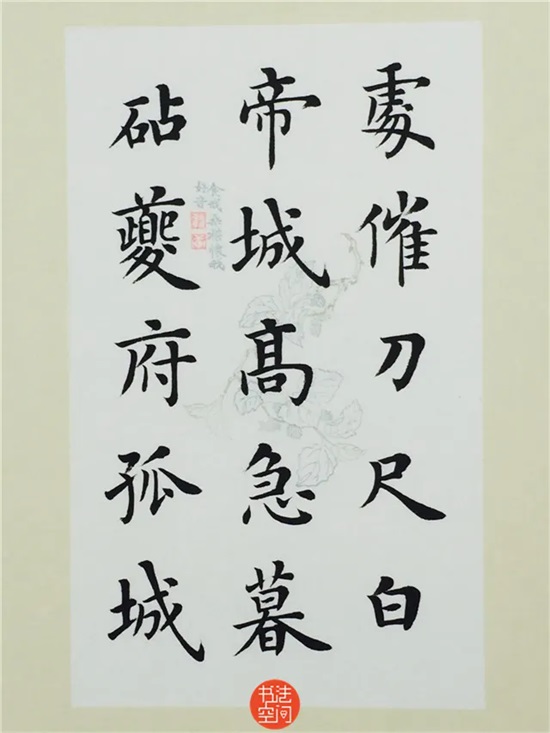 處催刀尺白
帝城髙急暮
砧夔府孤城
书法
空间